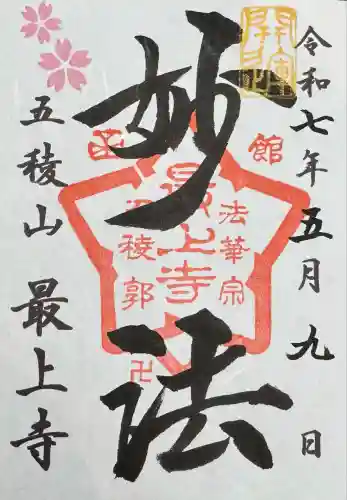 令和七年五月九日
妙法
函館
法華宗
最上寺
五稜郭
卍
五稜山 最上寺